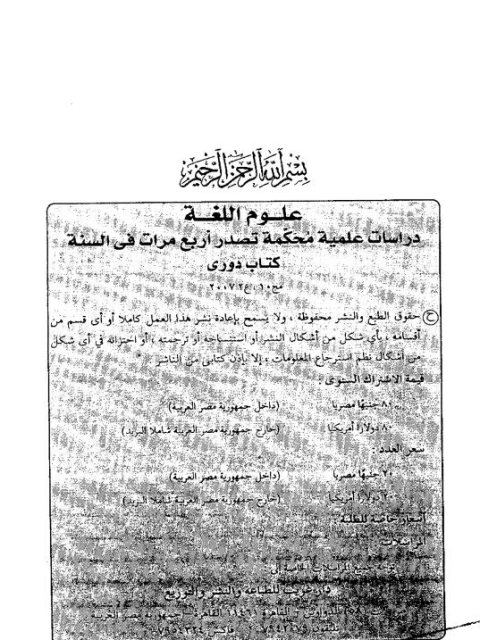 بسم الله الرحمن الرحيم
علوم اللغة
دراسات علمية محكمة تصدر أربع مرات فى السنة
كتاب دورى
مج١٠، ع٢، ٢٠٠٧
ح حقوق الطبع والنشر محفوظة ، ولا يسمح بإعادة نشر هذا العمل كاملا أو أى قسم من
أقسامه ، بأي شكل من أشكال النشر أو استنساخه أو ترجمته ، أو اختزانه في أى شكل
من أشكال نظم استرجاع المعلومات ، إلا بإذن كتابى من الناشر .
قيمة الاشتراك السنوى :
٨٠ جنيهًا مصريا (داخل جمهورية مصر العربية)
٨٠ دولارًا أمريكيا (خارج جمهورية مصر العربية شاملا البريد)
سعر العدد :
٢٠ جنيهًا مصريا (داخل جمهورية مصر العربية)
٢٠ دولارًا أمريكيا (خارج جمهورية مصر العربية شاملا البريد)
أسعار خاصة للطلبة .
المراسلات :
توجه جميع المراسلات الخاصة إلى
دار غريب للطباعة والنشر والتوزيع
القاهرة جمهورية مصر العربية
تليفون فاكس